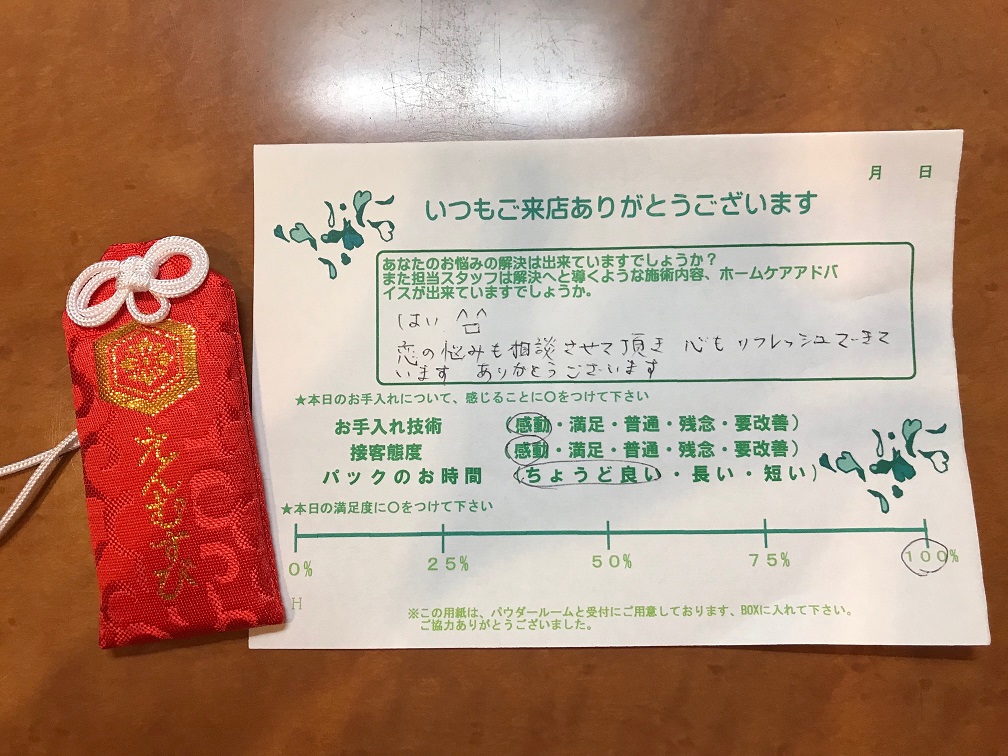 えんむすび
月 日
いつもご来店ありがとうございます
あなたのお悩みの解決は出来ていますでしょうか？
また担当スタッフは解決へと導くような施術内容、ホームケアアドバ
イスが出来ていますでしょうか。
はい ^^
恋の悩みも相談させて頂き 心もリフレッシュできて
います ありがとうございます
★本日のお手入れについて、感じることに○をつけて下さい
お手入れ技術 （感動・満足・普通・残念・要改善）
接客態度 （感動・満足・普通・残念・要改善）
パックのお時間 （ちょうど良い・長い・短い）
★本日の満足度に○をつけて下さい
0% 25% 50% 75% 100%
H
※この用紙は、パウダールームと受付にご用意しております、BOXに入れて下さい。
ご協力ありがとうございました。